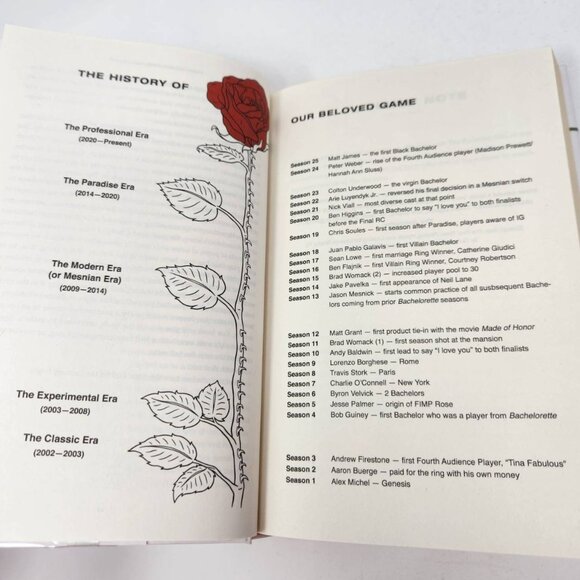 THE HISTORY OF
The Professional Era
(2020—Present)
The Paradise Era
(2014—2020)
The Modern Era
(or Mesnian Era)
(2009—2014)
The Experimental Era
(2003—2008)
The Classic Era
(2002—2003)
OUR BELOVED GAME
Season 25 Matt James — the first Black Bachelor
Season 24 Peter Weber — rise of the Fourth Audience player (Madison Prewett/
Hannah Ann Sluss)
Season 23 Colton Underwood — the virgin Bachelor
Season 22 Arie Luyendyk Jr. — reversed his final decision in a Mesnian switch
Season 21 Nick Viall — most diverse cast at that point
Season 20 Ben Higgins — first Bachelor to say "I love you" to both finalists
before the Final RC
Season 19 Chris Soules — first season after Paradise, players aware of IG
Season 18 Juan Pablo Galavis — first Villain Bachelor
Season 17 Sean Lowe — first marriage Ring Winner, Catherine Giudici
Season 16 Ben Flajnik — first Villain Ring Winner, Courtney Robertson
Season 15 Brad Womack (2) — increased player pool to 30
Season 14 Jake Pavelka — first appearance of Neil Lane
Season 13 Jason Mesnick — starts common practice of all susbsequent Bache-
lors coming from prior Bachelorette seasons
Season 12 Matt Grant — first product tie-in with the movie Made of Honor
Season 11 Brad Womack (1) — first season shot at the mansion
Season 10 Andy Baldwin — first lead to say "I love you" to both finalists
Season 9 Lorenzo Borghese — Rome
Season 8 Travis Stork — Paris
Season 7 Charlie O'Connell — New York
Season 6 Byron Velvick — 2 Bachelors
Season 5 Jesse Palmer — origin of FIMP Rose
Season 4 Bob Guiney — first Bachelor who was a player from Bachelorette
Season 3 Andrew Firestone — first Fourth Audience Player, "Tina Fabulous"
Season 2 Aaron Buerge — paid for the ring with his own money
Season 1 Alex Michel — Genesis